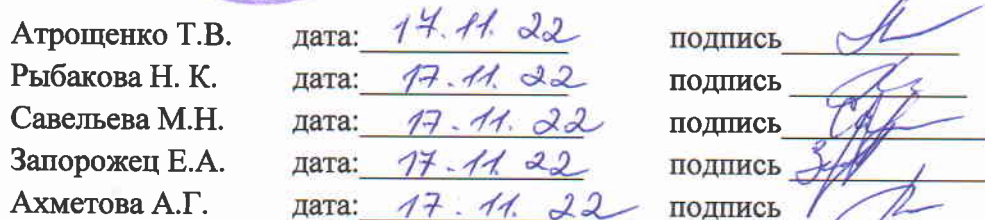 Атрощенко Т.В. дата: 17.11.22 подпись
Рыбакова Н. К. дата: 17.11.22 подпись
Савельева М.Н. дата: 17.11.22 подпись
Запорожец Е.А. дата: 17.11.22 подпись
Ахметова А.Г. дата: 17.11.22 подпись